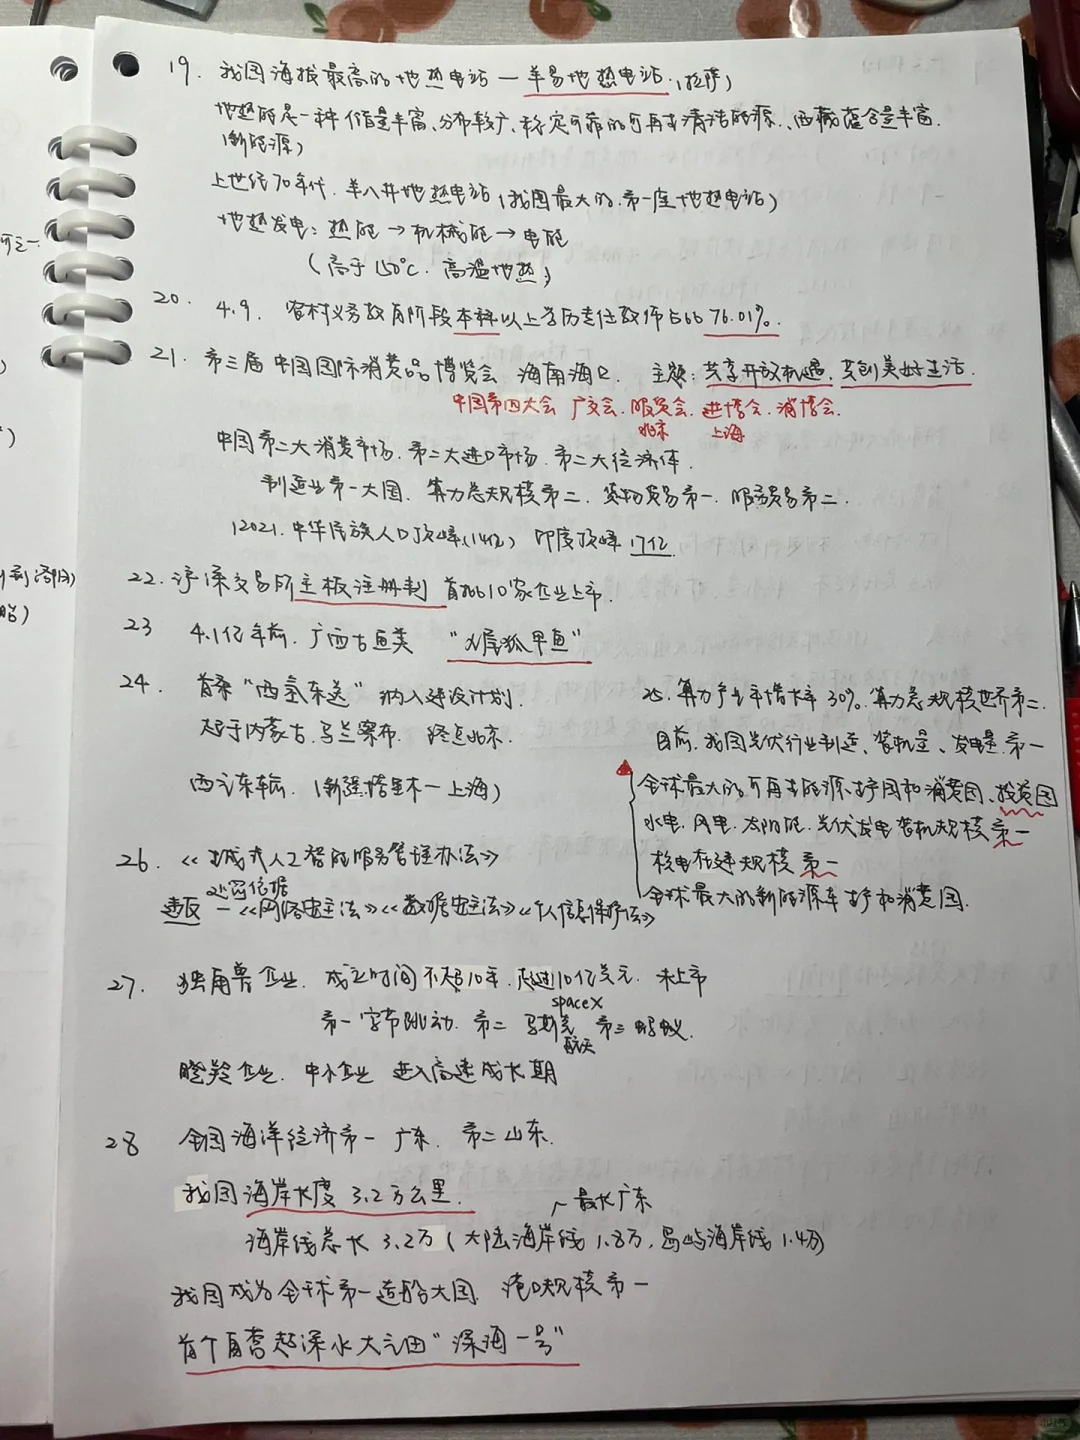 19. 我国海拔最高的地热电站—羊易地热电站.(拉萨)
地热能是一种储量丰富、分布较广、稳定可靠的可再生清洁能源.、西藏蕴含量丰富.
(新能源)
上世纪70年代.羊八井地热电站(我国最大的.第一座地热电站)
地热发电:热能→机械能→电能
(高于150℃.高温地热)
20. 4.9. 农村义务教育阶段本科以上学历专任教师占比76.01%.
21. 第三届中国国际消费品博览会 海南海口. 主题:共享开放机遇、共创美好生活.
中国第四大会 广交会.服贸会.进博会.消博会.
北京 上海
中国第二大消费市场.第二大进口市场.第二大经济体.
制造业第一大国.算力总规模第二.货物贸易第一.服务贸易第二.
(2021.中华民族人口顶峰(14亿) 印度顶峰17亿
22. 沪深交易所主板注册制 首批10家企业上市.
23 4.1亿年前.广西古鱼类 “双尾狐甲鱼”
24. 首条“西氢东送”纳入建设计划.
起于内蒙古.乌兰察布. 终点北京.
西气东输.(新疆塔里木—上海)
25. 算力产业年增长率30%.算力总规模世界第二.
目前.我国光伏行业制造、装机量、发电量第一
全球最大的可再生能源生产国和消费国、投资国
水电.风电.太阳能.光伏发电装机规模第一
核电在建规模第一
全球最大的新能源车生产和消费国.
26. 《生成式人工智能服务管理办法》
处罚依据
违反—《网络安全法》《数据安全法》《个人信息保护法》
27. 独角兽企业. 成立时间不超10年.超过10亿美元.未上市
spaceX
第一字节跳动.第二 马斯克 第三蚂蚁.
航天
瞪羚企业.中小企业 进入高速成长期
28 全国海洋经济第一 广东. 第二山东.
我国海岸长度3.2万公里.
最长广东
海岸线总长3.2万(大陆海岸线1.8万,岛屿海岸线1.4万)
我国成为全球第一造船大国.港口规模第一
首个自营超深水大气田“深海一号”